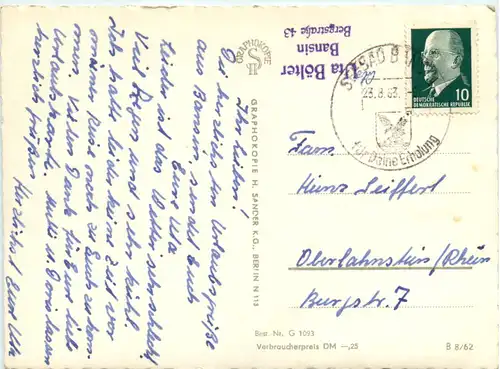 Ihr Lieben!
Die herzlichsten Urlaubsgrüße
aus Bansin, sendet Euch
Eure Uta
Leider ist das Wetter sehr schlecht,
Viel Regen und sehr kühl.
Ich habe leider keine Zeit vor
meiner Reise noch zu Euch zu kom-
men. Vielen Dank für Eure liebe
Urlaubskarte. Mutti u. Doris lassen
herzlich grüßen
Herzlichst Eure Uta
GRAPHOKOPIE
GRAPHOKOPIE H. SANDER K.G., BERLIN N 113
Uta Bölter
Bansin
Bergstraße 43
SEEBAD BANSIN
23.8.63.
für Deine Erholung
10
DEUTSCHE
DEMOKRATISCHE REPUBLIK
Fam.
Heinz Seiffert
Oberlahnstein/Rhein
Burgstr. 7
Best. Nr. G 1093
Verbraucherpreis DM —,25
B 8/62